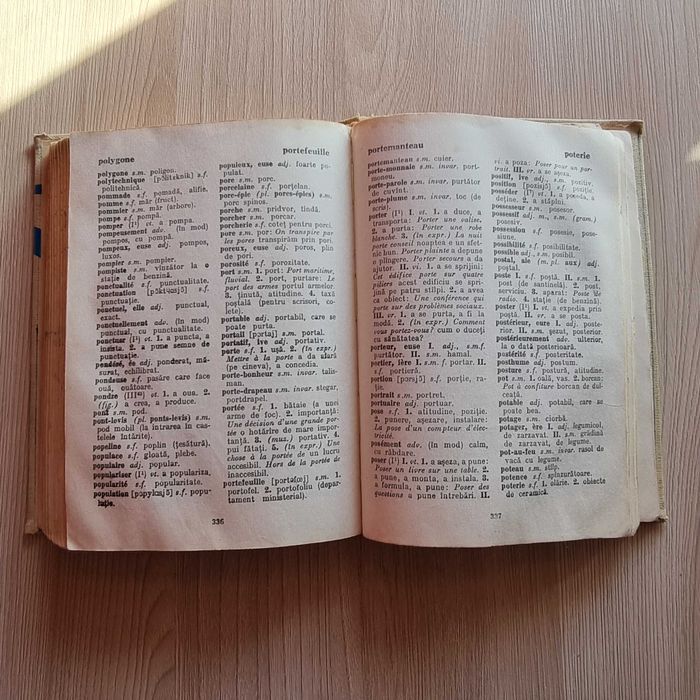 polygone
portefeuille
polygone s.m. poligon.
polytechnique s.f.
politehnică.
pommade s.f. pomadă, alifie.
pomme s.f. măr (fruct).
pommier s.m. măr (arbore).
pompe s.f. pompă.
pomper (I¹) vt. a pompa.
pompeusement adv. (în mod)
pompos, cu pompă.
pompeux, euse adj. pompos,
luxos.
pompier s.m. pompier.
pompiste s.m. vînzător la o
stație de benzină.
ponctualité s.f. punctualitate.
ponctuation s.f.
punctuație.
ponctuel, elle adj. punctual,
exact.
ponctuellement adv. (în mod)
punctual, cu punctualitate.
ponctuer (I¹) vt. 1. a puncta, a
insista. 2. a pune semne de
punctuație.
pondéré, ée adj. ponderat, mă-
surat, echilibrat.
pondeuse s.f. pasăre care face
ouă, ouătoare.
pondre vt. 1. a oua. 2.
(fig.) a crea, a produce.
pont s.m. pod.
pont-levis (pl. ponts-levis) s.m.
pod mobil (la intrarea în cas-
telele întărite).
popeline s.f. poplin (țesătură).
populace s.f. gloată, plebe.
populaire adj. popular.
populariser (I¹) vt. a populariza.
popularité s.f. popularitate.
population s.f. popu-
lație.
populeux, euse adj. foarte popu-
lat.
porc s.m. porc.
porcelaine s.f. porțelan.
porc-épic (pl. porcs-épics) s.m.
porc spinos.
porche s.m. pridvor, tindă.
porcher s.m. porcar.
porcherie s.f. coteț pentru porci.
pore s.m. por: On transpire par
les pores transpirăm prin pori.
poreux, euse adj. poros, plin
de pori.
porosité s.f. porozitate.
port s.m. 1. port: Port maritime,
fluvial. 2. port, purtare: Le
port des armes portul armelor.
3. ținută, atitudine. 4. taxă
poștală (pentru scrisori, co-
lete).
portable adj. portabil, care se
poate purta.
portail s.m. portal.
portatif, ive adj. portativ.
porte s.f. 1. ușă. 2. (în expr.)
Mettre à la porte a da afară
(pe cineva), a concedia.
porte-bonheur s.m. invar. talis-
man.
porte-drapeau s.m. invar. stegar,
portdrapel.
portée s.f. 1. bătaie (a unei
arme de foc). 2. importanță:
Une décision d'une grande por-
tée o hotărîre de mare impor-
tanță. 3. (muz.) portativ. 4.
pui fătați. 5. (în expr.) Une
chose à la portée de un lucru
accesibil. Hors de la portée de
inaccesibil.
portefeuille s.m. 1.
portofel. 2. portofoliu (depar-
tament ministerial).
336
portemanteau
poterie
portemanteau s.m. cuier.
porte-monnaie s.m. invar. port-
moneu.
porte-parole s.m. invar. purtător
de cuvînt.
porte-plume s.m. invar. toc (de
scris).
porter (I¹) vt. I. 1. a duce, a
transporta: Porter une valise.
2. a purta: Porter une robe
blanche. 3. (în expr.) La nuit
porte conseil noaptea e un sfet-
nic bun. Porter plainte a depune
o plîngere. Porter secours a da
ajutor. II. vi. 1. a se sprijini:
Cet édifice porte sur quatre
piliers acest edificiu se spri-
jină pe patru stîlpi. 2. a avea
ca obiect: Une conférence qui
porte sur des problèmes sociaux.
III. vr. 1. a se purta, a fi la
modă. 2. (în expr.) Comment
vous portez-vous? cum o duceți
cu sănătatea?
porteur, euse I. adj., s.m.f.
purtător. II. s.m. hamal.
portier, ière I. s.m. f. portar. II.
s.f. portieră.
portion s.f. porție, ra-
ție.
portrait s.m. portret.
portuaire adj. portuar.
pose s.f. 1. atitudine, poziție.
2. punere, așezare, instalare:
La pose d'un compteur d'élec-
tricité.
posément adv. (în mod) calm,
cu răbdare.
poser (I¹) vt. I. 1. a așeza, a pune:
Poser un livre sur une table. 2.
a pune, a monta, a instala. 3.
a formula, a pune: Poser des
questions a pune întrebări. II.
vi. a poza: Poser pour un por-
trait. III. vr. a se așeza.
positif, ive adj., s.m. pozitiv.
position s.f. poziție.
posséder (I¹) vt. 1. a poseda, a
deține. 2. a stăpîni.
possesseur s.m. posesor.
possessif adj., s.m. (gram.)
posesiv.
possession s.f. posesie, posesi-
une.
possibilité s.f. posibilitate.
possible adj., s.m. posibil.
postal, ale (m. pl. aux) adj.
poștal.
poste I. s.f. poștă. II. s.m. 1.
post (de santinelă). 2. post,
serviciu. 3. aparat: Poste de
radio. 4. stație (de benzină).
poster (I¹) vt. a expedia prin
poștă. II. vr. a se posta.
postérieur, eure I. adj. poste-
rior. II. s.m. șezut, posterior.
postérieurement adv. ulterior,
la o dată posterioară.
postérité s.f. posteritate.
posthume adj. postum.
posture s.f. postură, atitudine.
pot s.m. 1. oală, vas. 2. borcan:
Pot à confiture borcan de dul-
ceață.
potable adj. potabil, care se
poate bea.
potage s.m. ciorbă.
potager, ère I. adj. legumicol,
de zarzavat. II. s.m. grădină
de zarzavat, de legume.
pot-au-feu s.m. invar. rasol de
vacă cu legume.
poteau s.m. stîlp.
potence s.f. spînzurătoare.
poterie s.f. 1. olărie. 2. obiecte
de ceramică.
337